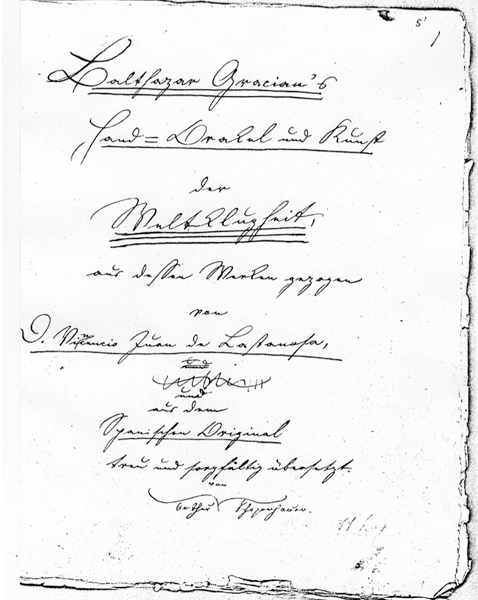 5'
1
Balthazar Gracian's
Hand=Orakel und Kunst
der
Weltklugheit,
aus dessen Werken gezogen
von
D. Vincencio Juan de Lastanosa,
und
aus dem
Spanischen Original
treu und sorgfältig übersetzt.
von
Arthur Schopenhauer.